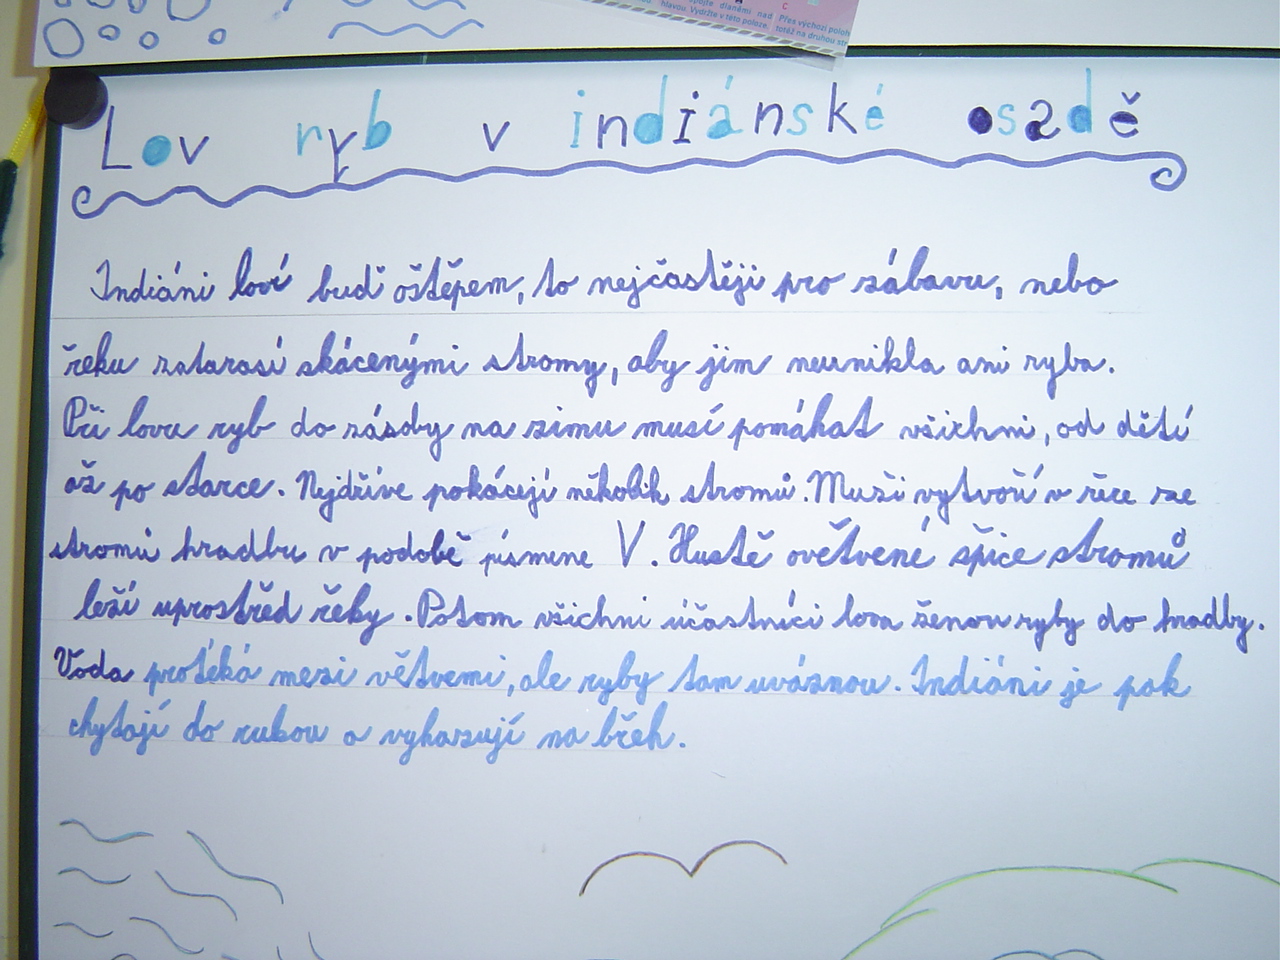 spojte dlaněmi nad
hlavou. Vydržte v této poloze.
Přes výchozí poloh
totéž na druhou str
Lov ryb v indiánské osadě
Indiáni loví buď oštěpem, to nejčastěji pro zábavu, nebo
řeku zatarasí skácenými stromy, aby jim neunikla ani ryba.
Při lovu ryb do zásoby na zimu musí pomáhat všichni, od dětí
až po starce. Nejdříve pokácejí několik stromů. Muži vytvoří v řece ze
stromů hradbu v podobě písmene V. Hustě ovětvené špice stromů
leží uprostřed řeky. Potom všichni účastníci lovu ženou ryby do hradby.
Voda protéká mezi větvemi, ale ryby tam uváznou. Indiáni je pak
chytají do rukou a vyhazují na břeh.